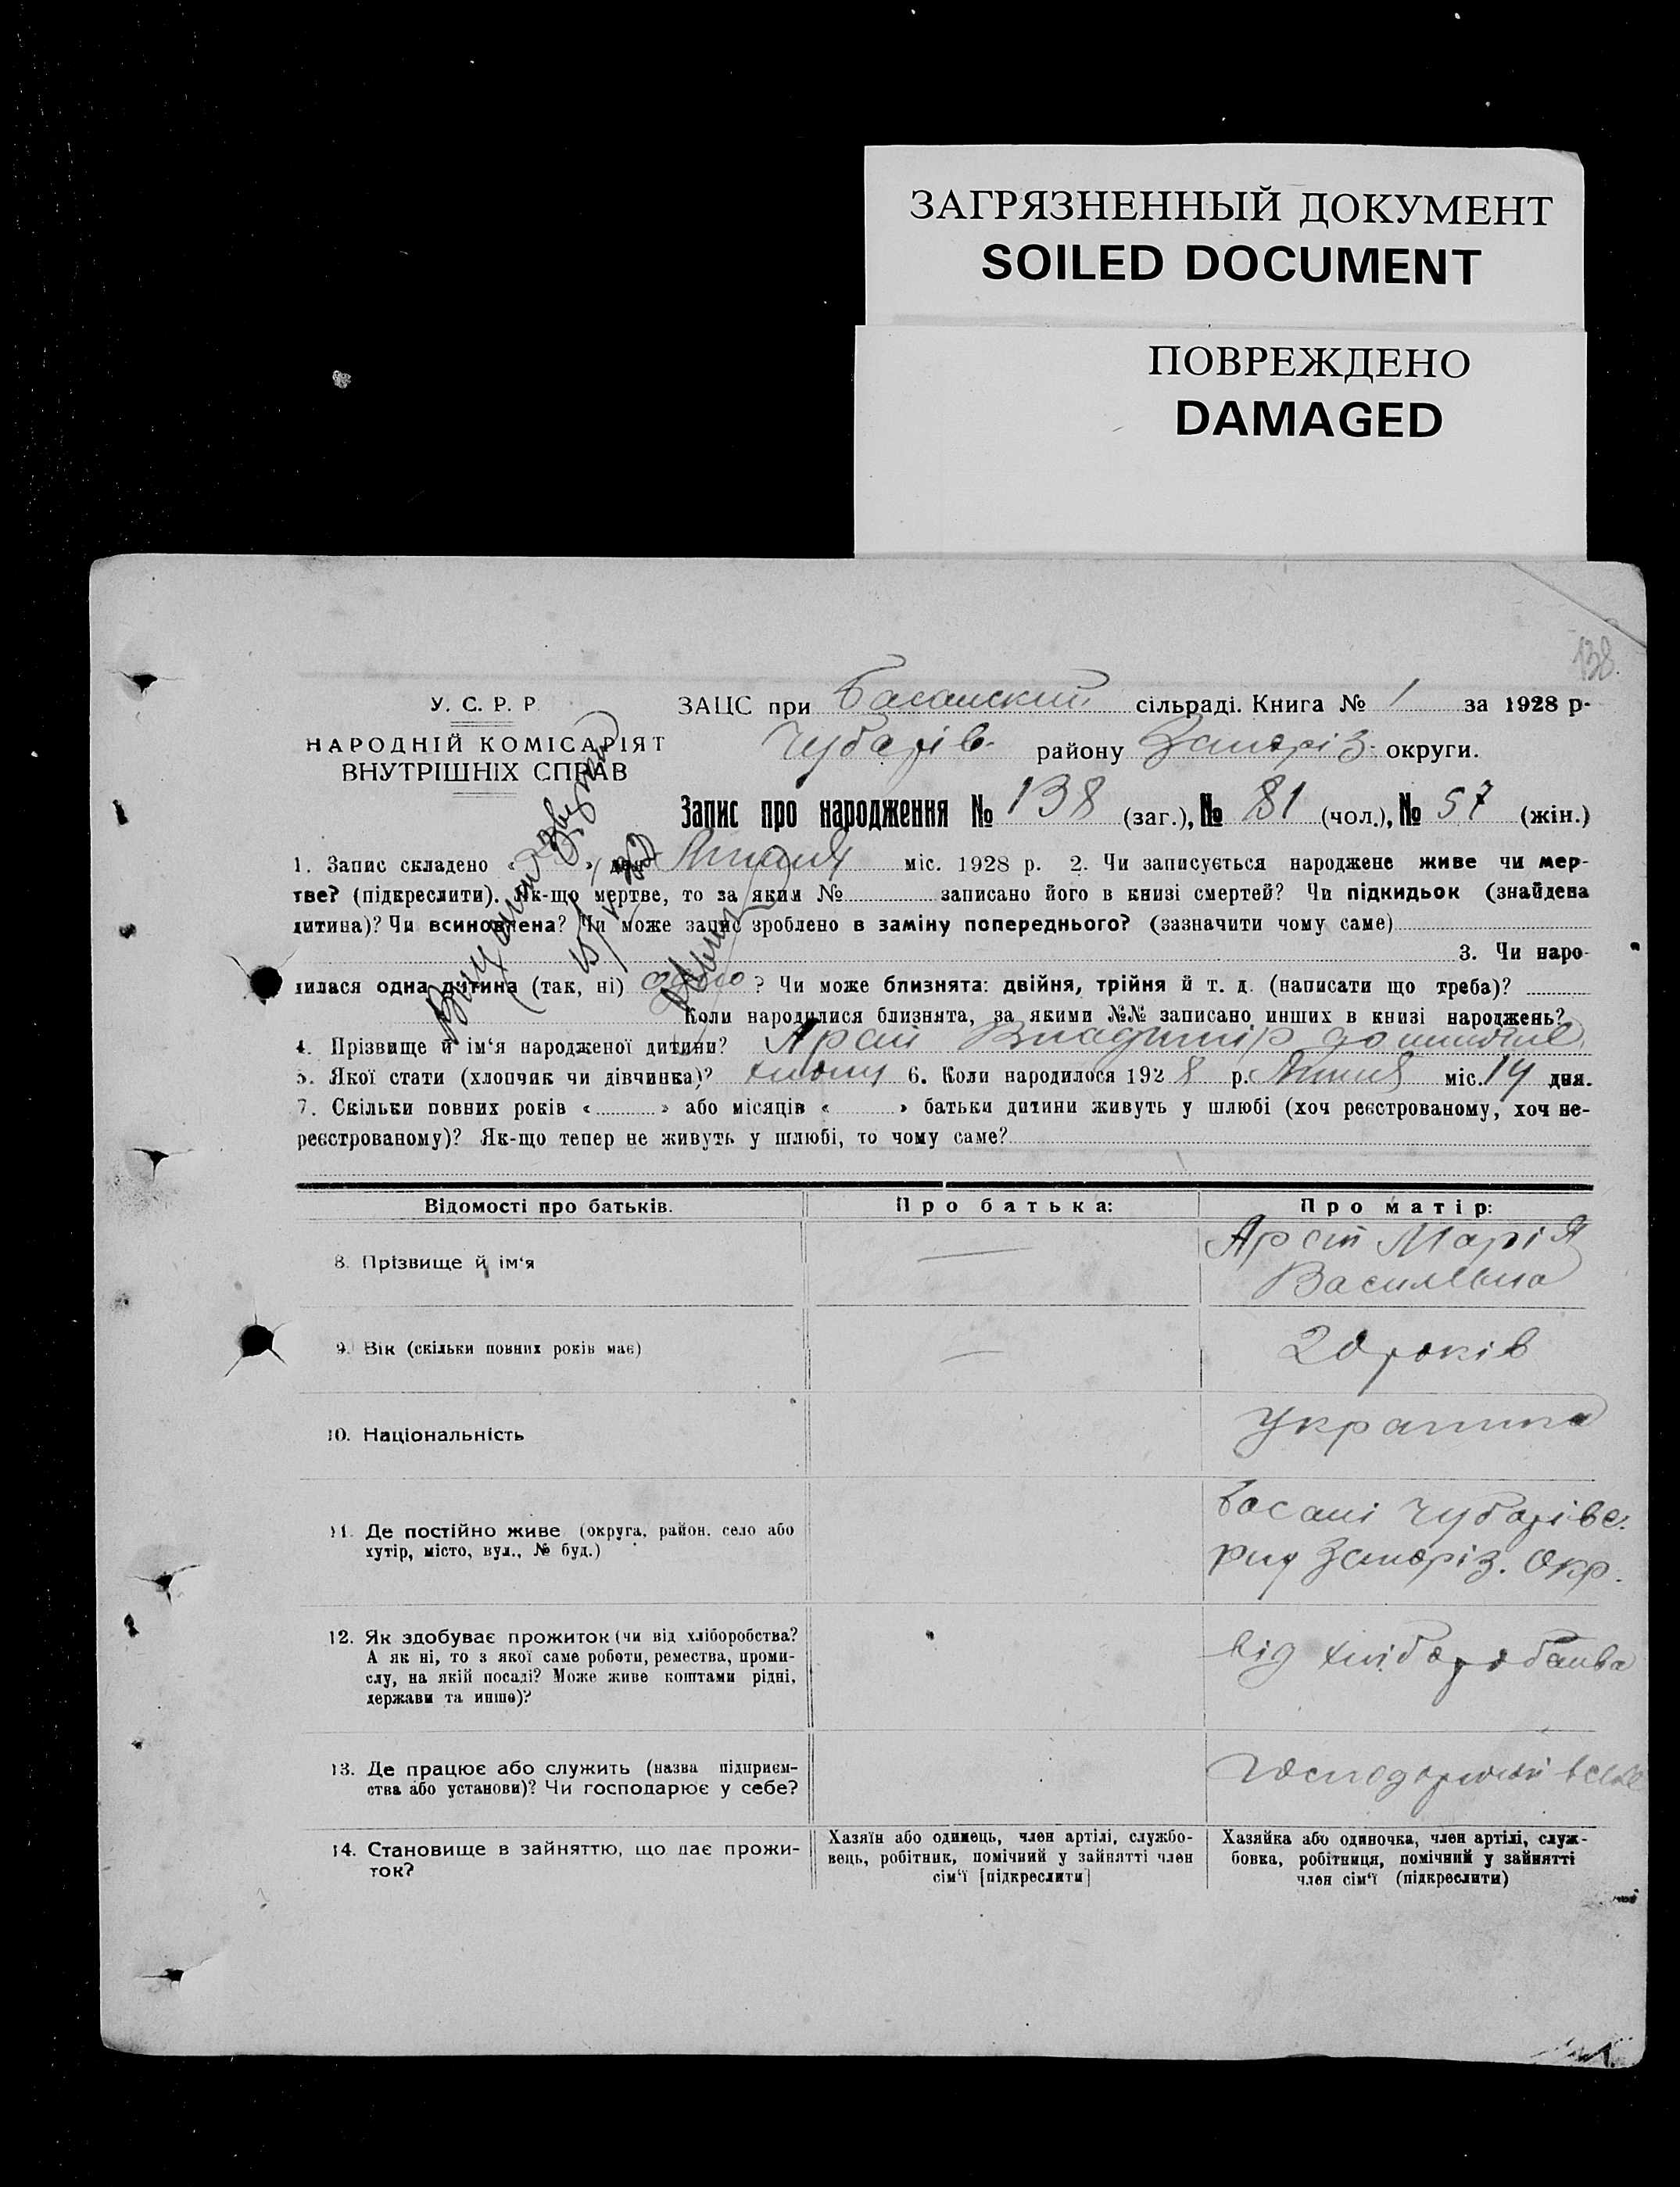 ЗАГРЯЗНЕННЫЙ ДОКУМЕНТ
SOILED DOCUMENT
ПОВРЕЖДЕНО
DAMAGED
138.
У. С. Р. Р.
НАРОДНІЙ КОМІСАРІЯТ
ВНУТРІШНІХ СПРАВ
ЗАЦС при Басанский сільраді. Книга № 1 за 1928 р.
Чубарів. району Запоріз. округи.
Запис про народження № 138 (заг.), № 81 (чол.), № 57 (жін.)
1. Запис складено « » дня міс. 1928 р. 2. Чи записується народжене живе чи мер-
тве? (підкреслити). Як-що мертве, то за яким № записано його в книзі смертей? Чи підкидьок (знайдена
дитина)? Чи всиновлена? Чи може запис зроблено в заміну попереднього? (зазначити чому саме)
3. Чи наро-
дилася одна дитина (так, ні) одно ? Чи може близнята: двійня, трійня й т. д. (написати що треба)?
Коли народилися близнята, за якими №№ записано инших в книзі народжень?
4. Прізвище й ім'я народженої дитини? Арсій Владимір
5. Якої стати (хлопчик чи дівчинка)? хлопч 6. Коли народилося 1928 р. міс. 14 дня.
7. Скільки повних років « » або місяців « » батьки дитини живуть у шлюбі (хоч реєстрованому, хоч не-
реєстрованому)? Як-що тепер не живуть у шлюбі, то чому саме?
Відомості про батьків. Про батька: Про матір:
8. Прізвище й ім'я — Арсій Марія
Василівна
9. Вік (скільки повних років має) — 20 років
10. Національність Украинка
11. Де постійно живе (округа, район, село або
хутір, місто, вул., № буд.)
Басані Чубарівс.
рну Запоріз. Окр.
12. Як здобуває прожиток (чи від хліборобства?
А як ні, то з якої саме роботи, ремества, проми-
слу, на якій посаді? Може живе коштами рідні,
держави та инше)?
від хліборобства
13. Де працює або служить (назва підприєм-
ства або установи)? Чи господарює у себе?
14. Становище в зайняттю, що дає прожи-
ток?
Хазяїн або одинець, член артілі, службо-
вець, робітник, помічний у зайнятті член
сім'ї [підкреслити]
Хазяйка або одиночка, член артілі, служ-
бовка, робітниця, помічний у зайнятті
член сім'ї (підкреслити)